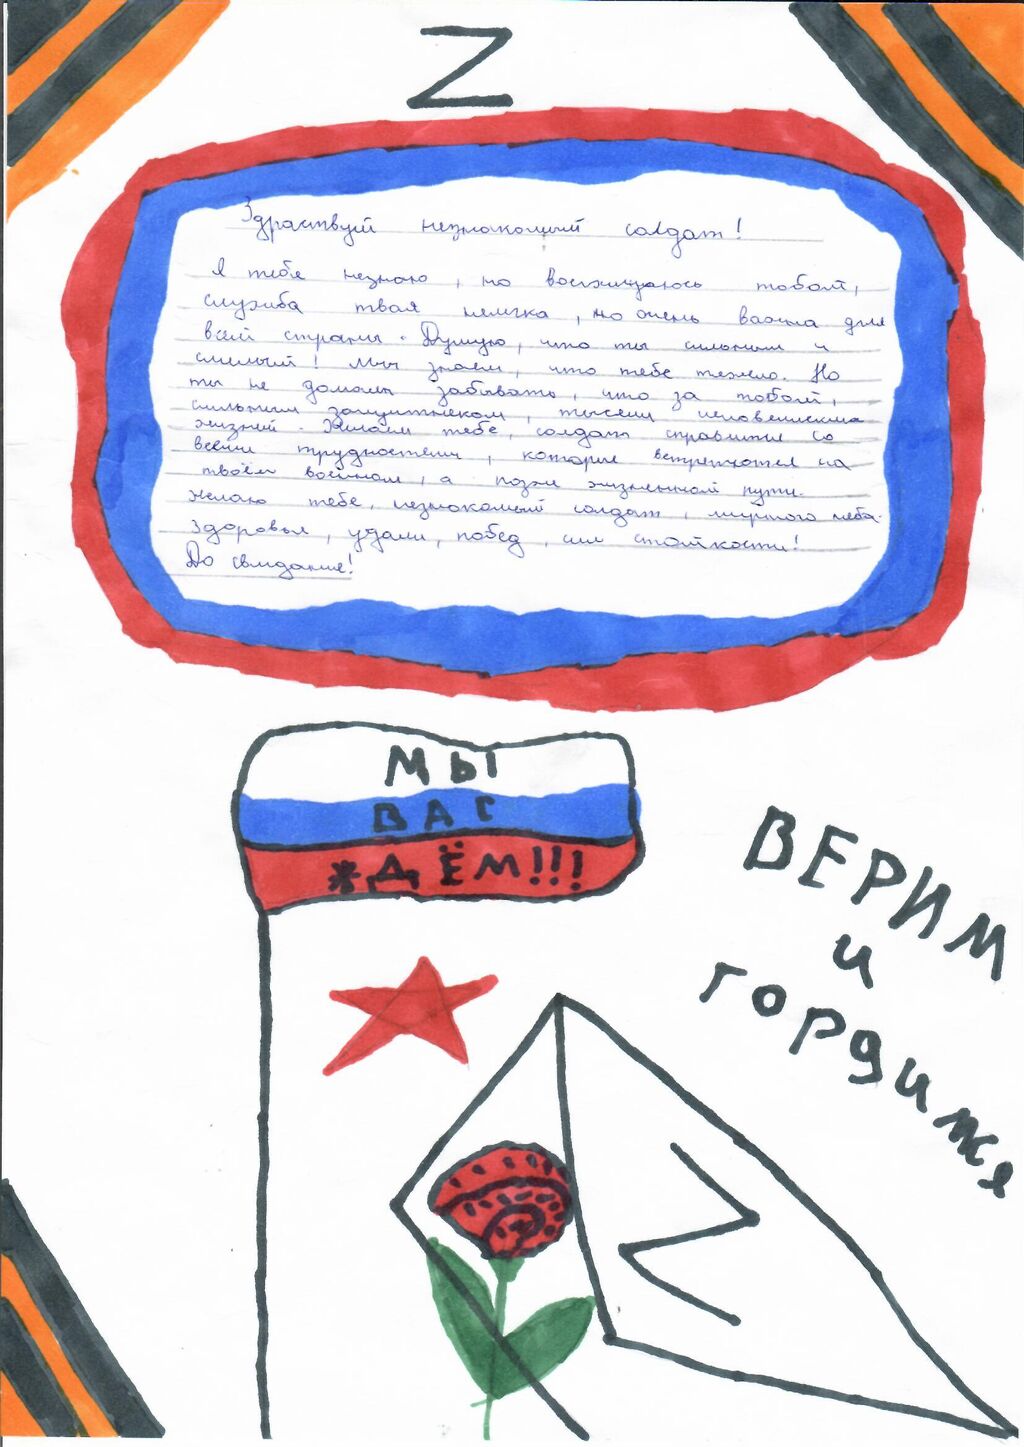 Z
Здраствуй незнакомый солдат!
Я тебя незнаю, но восхищаюсь тобой,
служба твоя нелегка, но очень важна для
всей страны. Думаю, что ты сильный и
смелый! Мы знаем, что тебе тяжело. Но
ты не должен забывать, что за тобой,
сильным защитником, тысячи человеческих
жизней. Желаем тебе, солдат справится со
всеми трудностями, которые встречаются на
твоём военном, а позж жизненном пути.
Желаю тебе, незнакомый солдат, мирного неба.
Здоровья, удачи, побед, сил стойкости!
До свидание!
МЫ
ВАС
ЖДЁМ!!!
ВЕРИМ
и
гордимся
Z